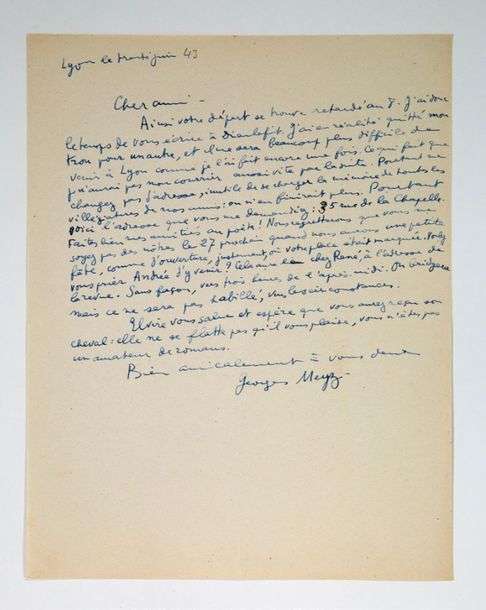 Lyon le trente juin 43
Cher ami -
Ainsi votre départ se trouve retardé au 8. J'ai donc
le temps de vous écrire à Dieulefit. J'ai en réalité quitté mon
trou pour un autre, et il me sera beaucoup plus difficile de
venir à Lyon comme je l'ai fait encore une fois. Ce qui fait que
je n'aurai pas mon courrier aussi vite par la suite. Pourtant ne
changez pas l'adresse, inutile de se charger la mémoire de toutes les
villégiatures de nos amis: on n'en finirait plus. Pourtant
voici l'adresse que vous me demandiez: 35 rue de la Chapelle.
Faites bien mes amitiés au poète! Nous regretterons que vous ne
soyez pas des nôtres le 27 prochain quand nous aurons une petite
fête, comme d'ouverture, justement, où votre place était marquée.
vous prier André d'y venir? Cela aura lieu chez René, à l'adresse de
la revue. Sans façon, vers trois heures de l'après-midi. On
mais ce ne sera pas habillé, vu les circonstances.
Elvire vous salue et espère que vous aurez reçu son
cheval: elle ne se flatte pas qu'il vous plaise, vous n'êtes pas
un amateur de romans.
Bien amicalement à vous deux
Georges Meyz